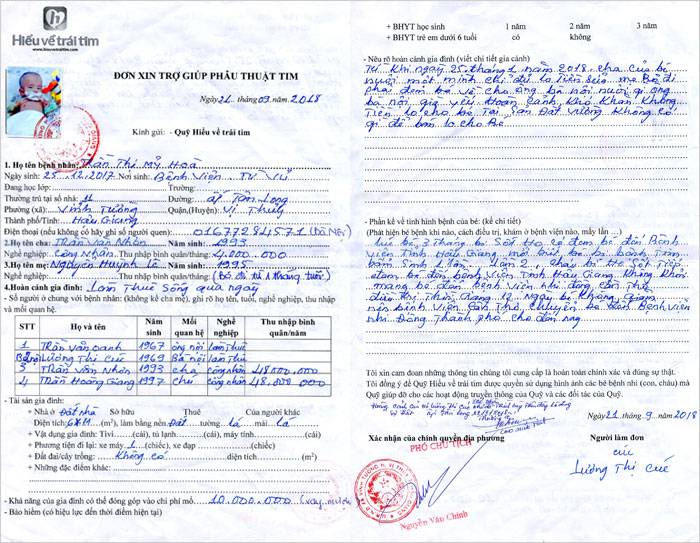 h
Hiểu về trái tim
www.hieuvetraitim.com
ĐƠN XIN TRỢ GIÚP PHẪU THUẬT TIM
Ngày 21 tháng 09 năm 2018
Kính gửi: - Quỹ Hiểu về trái tim
1. Họ tên bệnh nhân: Trần Thị Mỹ Hoà
Ngày sinh: 25.12.2017 Nơi sinh: Bệnh Viện Từ Vũ
Đang học lớp: Trường:
Thường trú tại số nhà: 11 Đường: ấp Tân Long
Phường (xã): Vĩnh Tường Quận,(Huyện): Vị Thủy
Thành phố/Tỉnh: Hậu Giang
Điện thoại (nếu không có hãy ghi số người quen): 01677284571 (Bà Nội)
2.Họ tên cha: Trần Văn Nhôn Năm sinh: 1993
Nghề nghiệp: Công Nhân Thu nhập/tháng: 4.000.000
3.Họ tên mẹ: Nguyễn Huỳnh Lê Năm sinh: 1995
Nghề nghiệp: Thu nhập/tháng: bỏ đi từ 1 tháng tuổi
4.Hoàn cảnh gia đình: Làm Thuê Sống qua ngày
- Số người ở chung với bệnh nhân: (không kể cha mẹ), ghi rõ họ tên, tuổi, nghề nghiệp, thu nhập
và mối quan hệ.
STT Họ và tên Năm sinh Mối quan hệ Nghề nghiệp Thu nhập bình quân/năm
1 Trần Văn Oanh 1967 ông nội làm Thuê
Lương Thị Cúc 1969 Bà nội làm Thuê
3 Trần Văn Nhôn 1993 cha công nhân 48.000.000
4 Trần Hoàng Giang 1997 chú công nhân 48.000.000
- Tài sản gia đình:
+ Nhà ở Đất nhà Sở hữu Thuê Của người khác
Diện tích: 6XM (m²), làm bằng nền đất tường lá mái lá
+ Vật dụng gia đình: Tivi (cái), tủ lạnh (cái), máy tính (chiếc)
+ Phương tiện đi lại: xe máy 1 (chiếc), xe đạp (chiếc)
+ Đất đai/cây trồng: Không có diện tích (m²)
+ Những đặc điểm khác:
- Khả năng của gia đình có thể đóng góp vào chi phí mổ: 10.000.000
- Bảo hiểm (có hiệu lực đến thời điểm hiện tại)
+ BHYT học sinh 1 năm 2 năm 3 năm
+ BHYT trẻ em dưới 6 tuổi có không
- Nêu rõ hoàn cảnh gia đình (viết chi tiết gia cảnh)
Từ Khi ngày 25 tháng 1 năm 2018 cha của bé
nuôi một mình chỉ đủ lo Tiền Sữa mẹ Bỏ đi
phải đem bé về cho ông bà nội nuôi gì ông
bà nội già yếu Hoàn Cảnh Khó Khăn Không
Tiền lo cho bé Tài Sản Đất Vườn Không có
gì để bán lo cho Bé
- Phần kể về tình hình bệnh của bé: (kể chi tiết)
(Phát hiện bị bệnh khi nào, cách điều trị, khám ở bệnh viện nào, mấy lần …)
lúc bé 3 Tháng bị Sốt Ho có đem bé đến Bệnh
viện Tỉnh Hậu Giang mới biết bé bị bệnh Tim
bẩm Sinh lần 2 cháu bị Ho Sốt Tiếp
đem bé đến bệnh Viện Tỉnh Hậu Giang Không Khỏi
mang bé đến bệnh Viện nhi đồng Cần Thơ
điều Trị Thời Gian 12 Ngày bị Không Giảm
nên bệnh Viện Cần Thơ Chuyển bé đến Bệnh Viện
nhi Đồng Thành phố cho đến nay
Tôi xin cam đoan những thông tin chúng tôi cung cấp là hoàn toàn chính xác và đúng sự thật.
Tôi đồng ý để Quỹ Hiểu về trái tim được quyền sử dụng hình ảnh các bé bệnh nhi (con, cháu) mà
Quỹ giúp đỡ cho các hoạt động truyền thông của Quỹ và các đối tác của Quỹ.
Ngày 21 tháng 9 năm 2018
Xác nhận của chính quyền địa phương Người làm đơn
PHÓ CHỦ TỊCH cúc
Lương Thị Cúc
Nguyễn Văn Chính